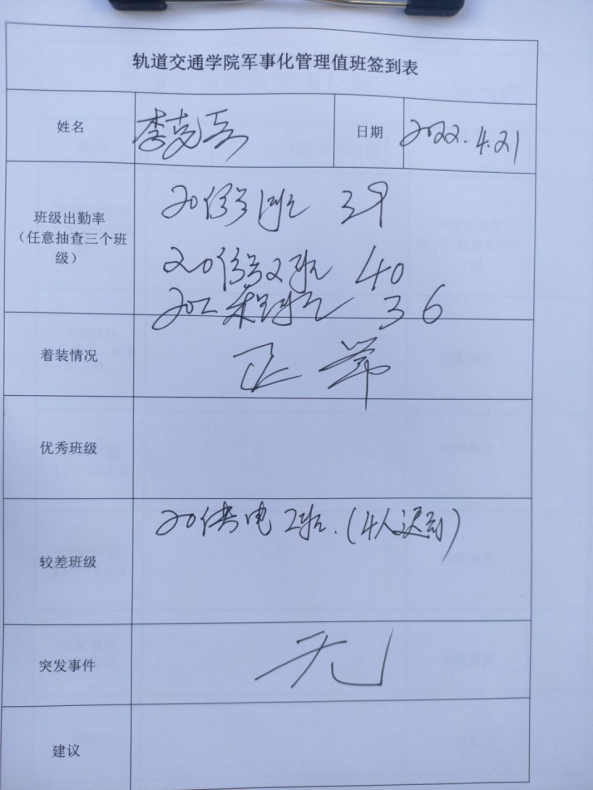 轨道交通学院军事化管理值班签到表
姓名
李克
日期
2022.4.21
班级出勤率
(任意抽查三个班
级)
20信号1班 39
20信号2班 40
20工程班 36
着装情况
正常
优秀班级
较差班级
20供电2班.(4人迟到)
突发事件
无
建议